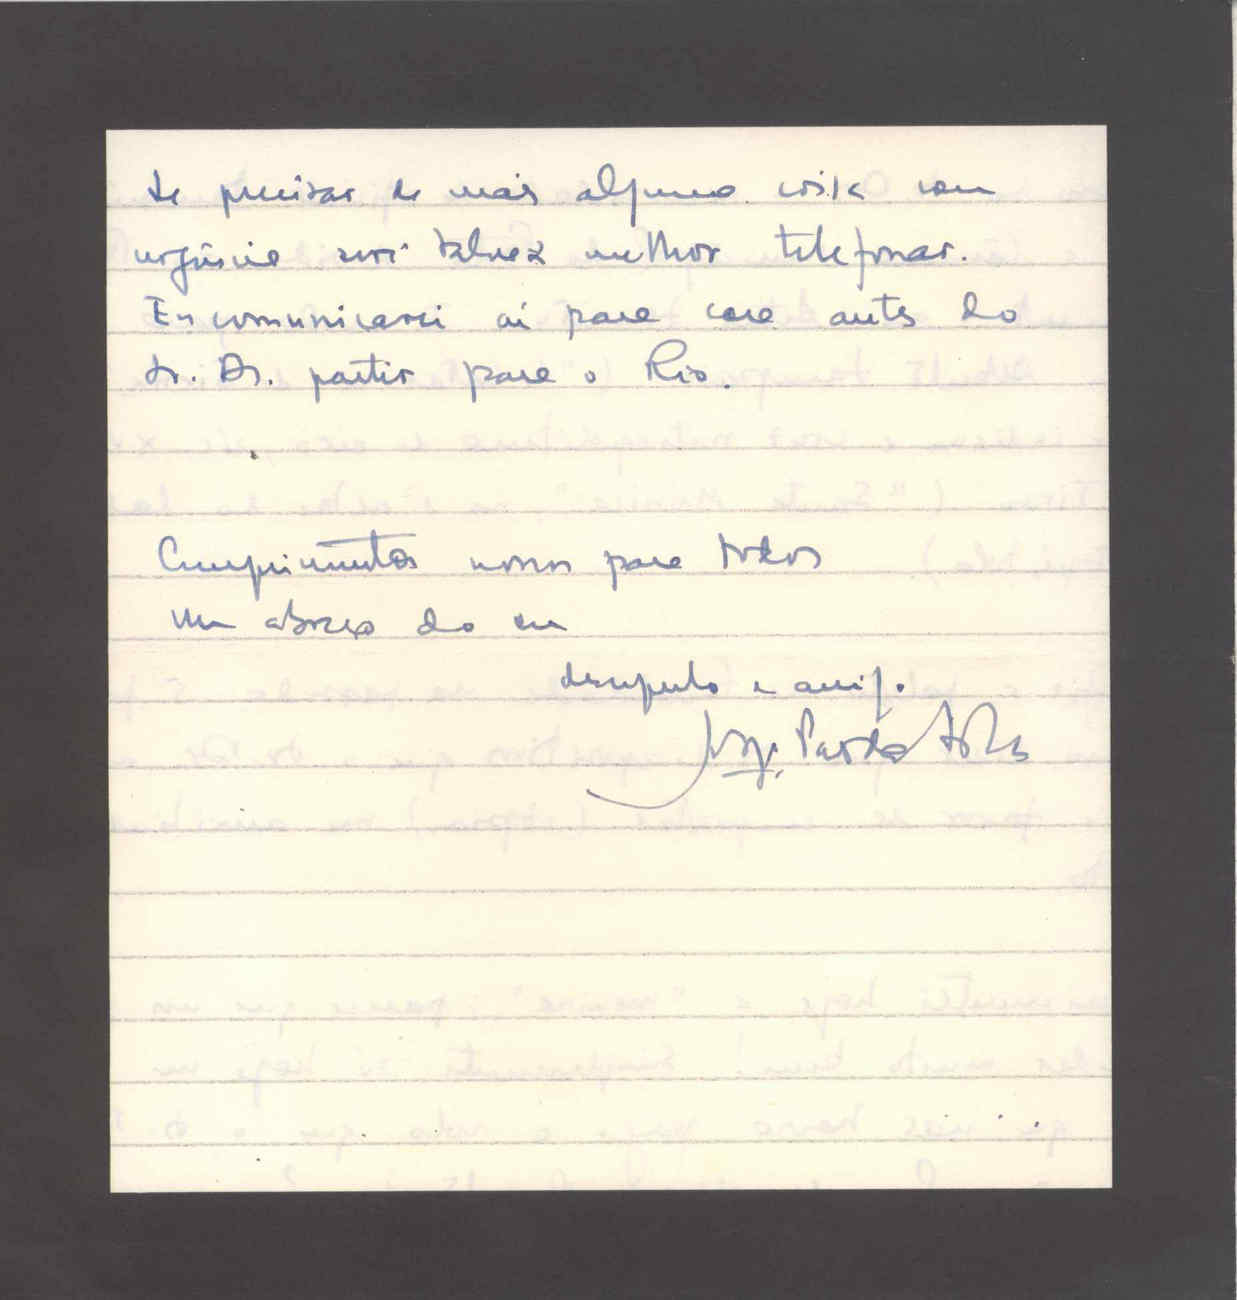 Se precisar de mais alguma coisa com
urgência será talvez melhor telefonar.
Eu comunicarei aí para casa antes do
Sr. Dr. partir para o Rio.
Cumprimentos nossos para todos
Um abraço do seu
discípulo e amigo
Jorge